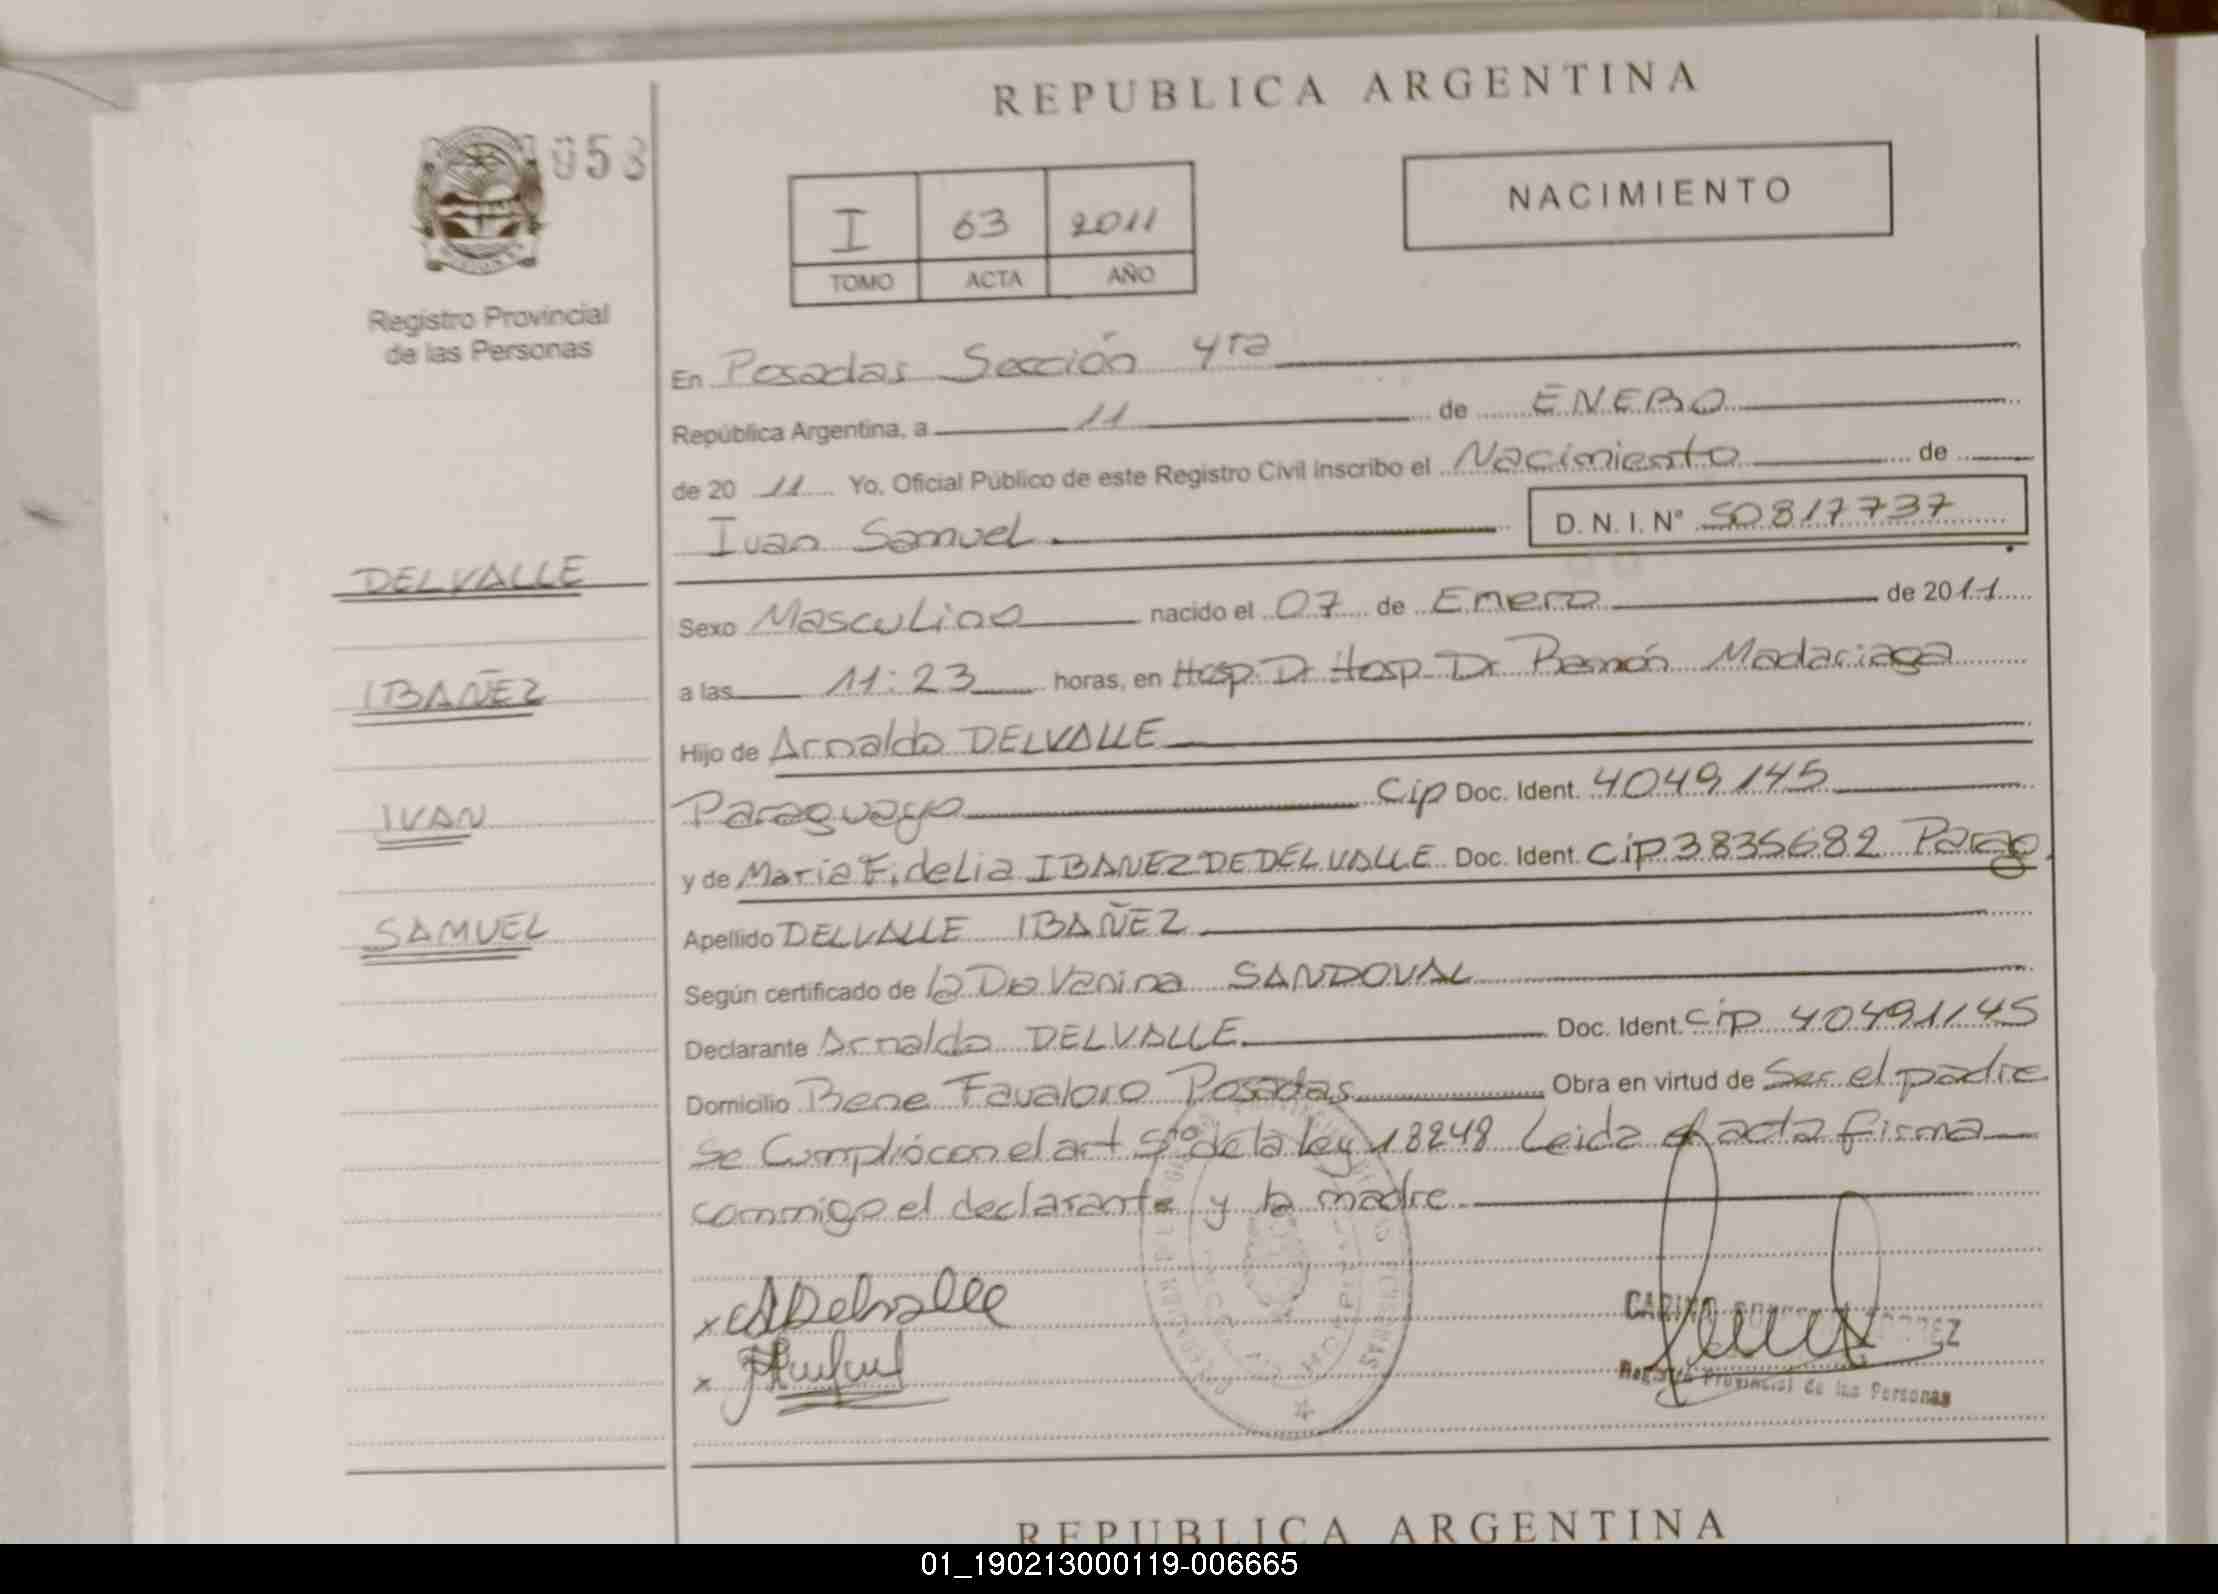 REPUBLICA ARGENTINA
053
NACIMIENTO
I 63 2011
TOMO ACTA AÑO
Registro Provincial
de las Personas
En Posadas Sección 4ta
República Argentina, a 11 de ENERO
de 20 11 Yo, Oficial Público de este Registro Civil inscribo el Nacimiento de
Ivan Samuel D. N. I. Nº 50817737
DELVALLE
IBAÑEZ
IVAN
SAMUEL
Sexo Masculino nacido el 07 de Enero de 2011
a las 11:23 horas, en Hosp. Dr Hosp. Dr. Ramón Madariaga
Hijo de Arnaldo DELVALLE
Paraguayo Cip Doc. Ident. 4049145
y de Maria Fidelia IBANEZ DE DELVALLE Doc. Ident. Cip 3835682 Parag
Apellido DELVALLE IBAÑEZ
Según certificado de la Dra Vanina SANDOVAL
Declarante Arnaldo DELVALLE Doc. Ident. Cip 4049145
Domicilio Rene Favaloro Posadas Obra en virtud de Ser el padre
Se Cumplió con el art 5to de la Ley 18248 Leida el acta firma
conmigo el declarante y la madre
x ADelvalle
x
Registro Provincial de las Personas
REPUBLICA ARGENTINA
01_190213000119-006665